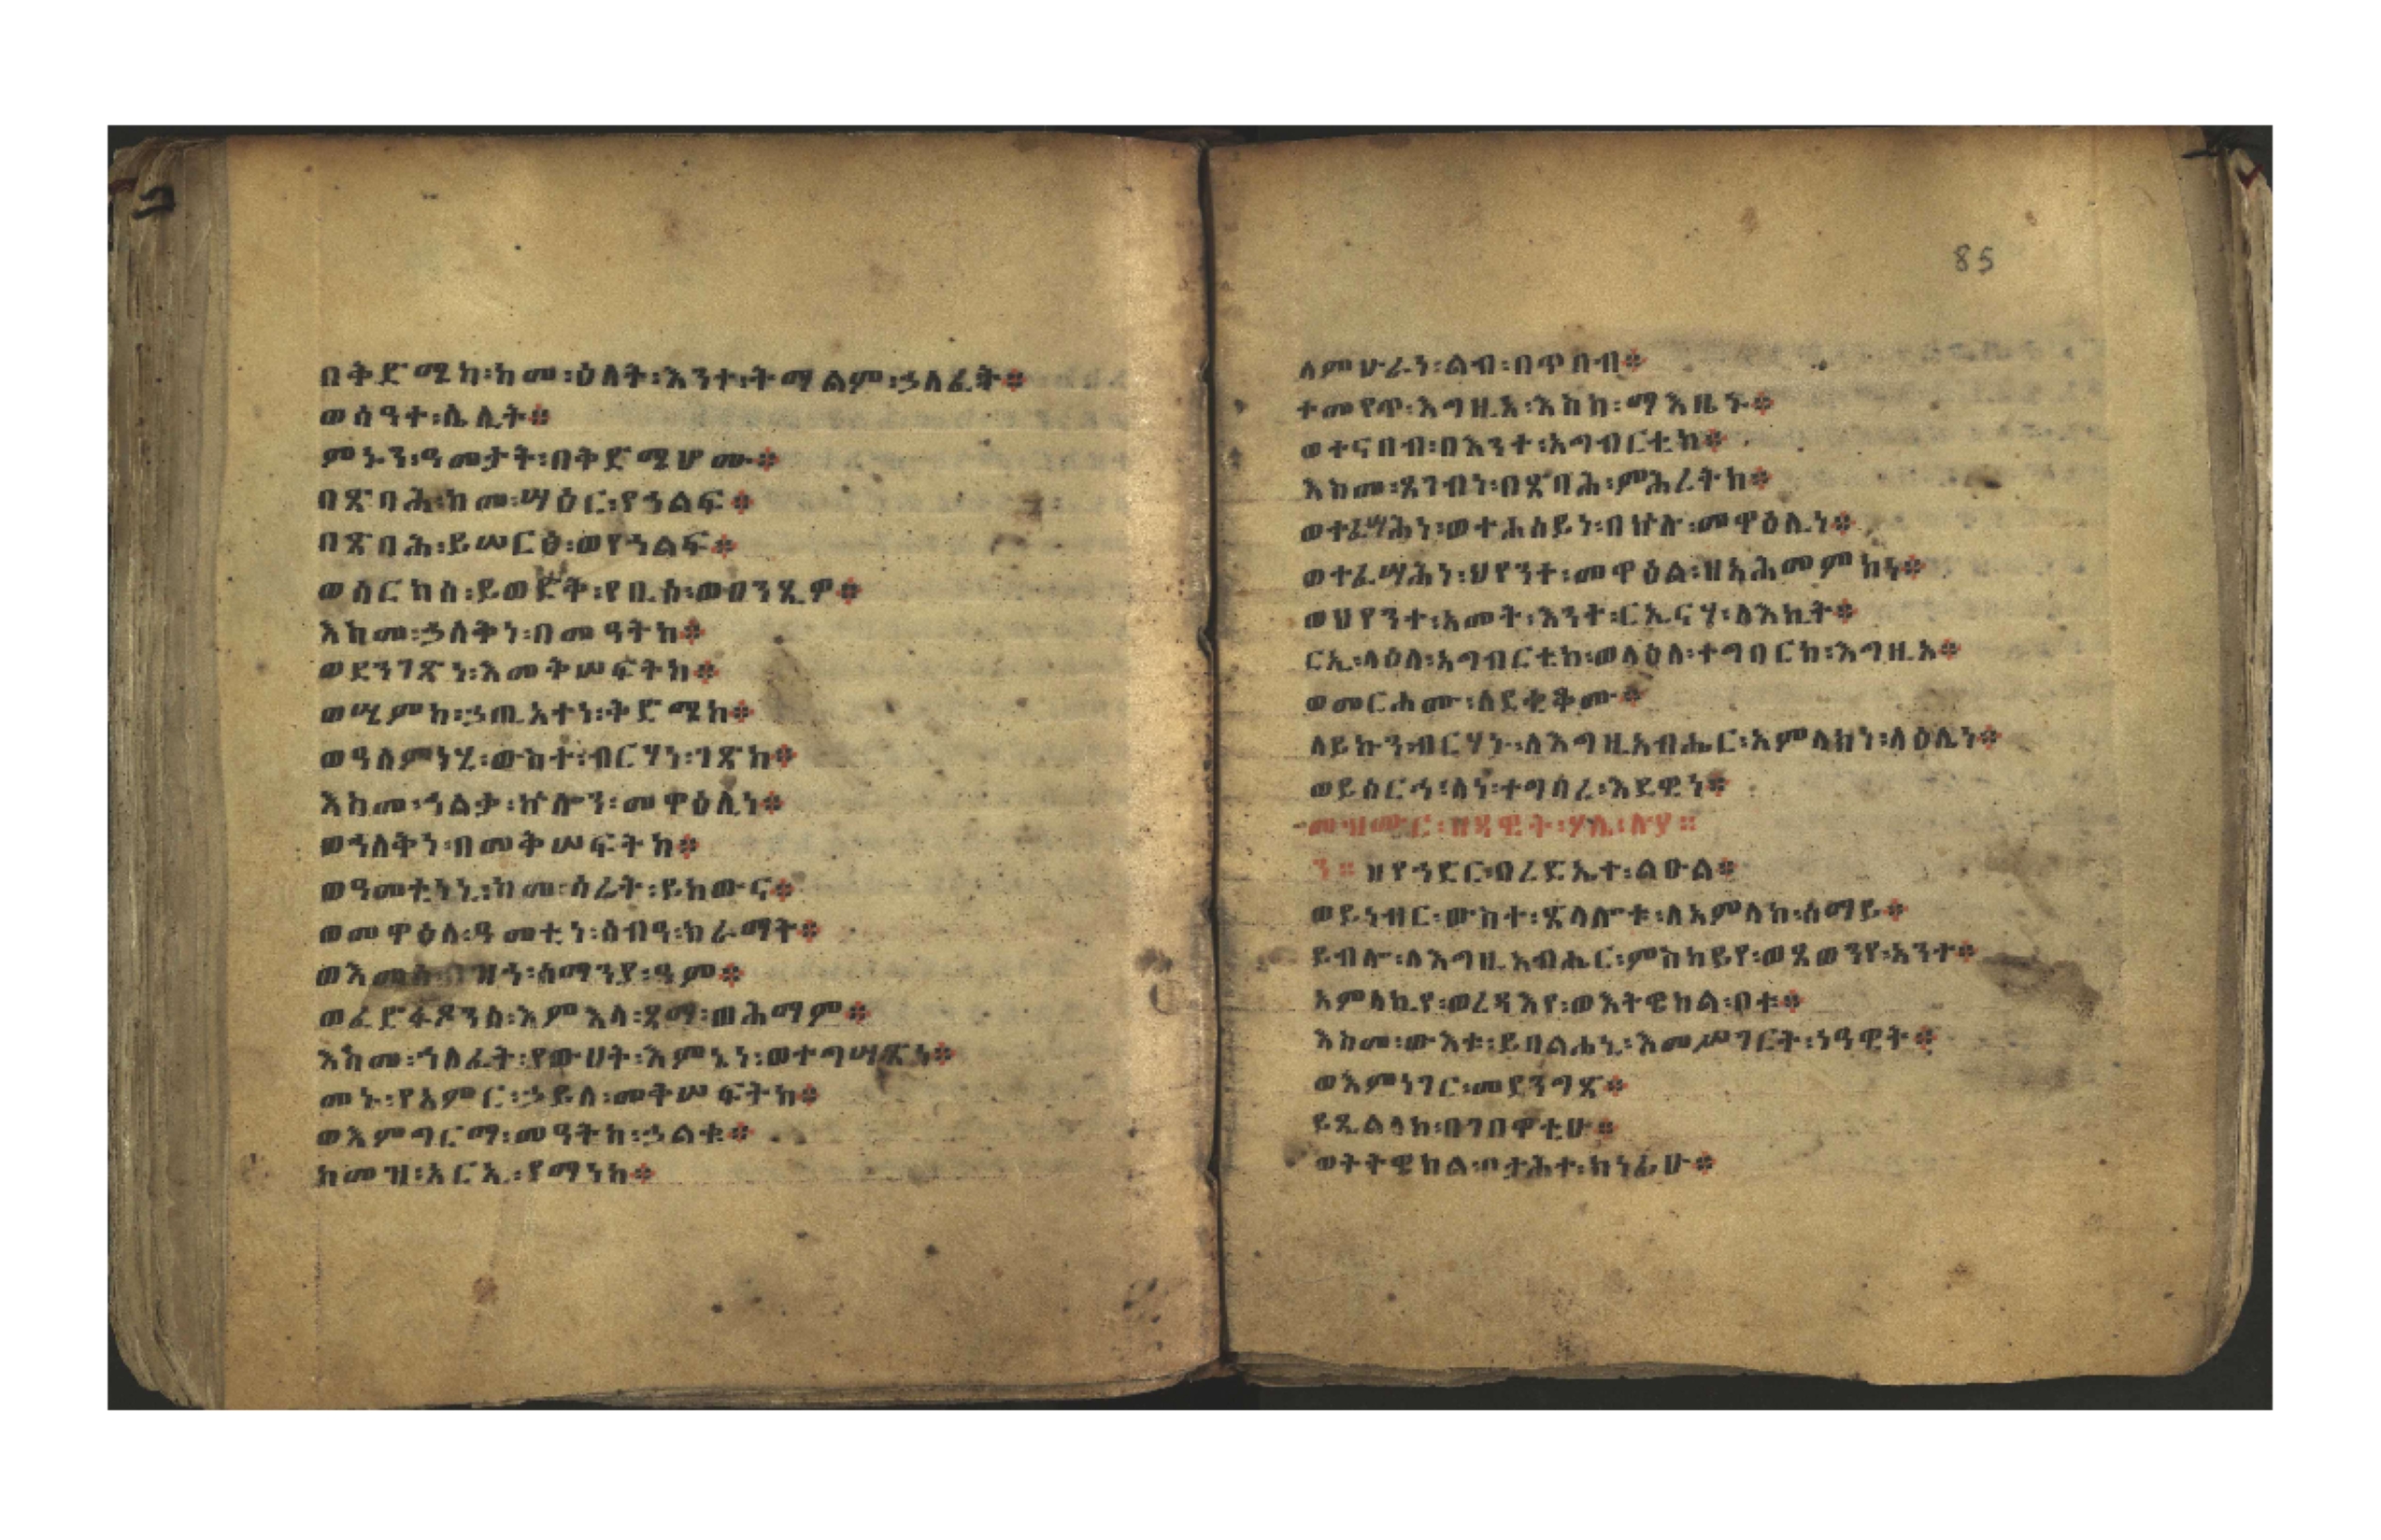 በቅድሜከ፡ከመ፡ዕለት፡እንተ፡ትማልም፡ኃለፈት።
ወሰዓተ፡ሌሊት።
ምኑን፡ዓመታት፡በቅድሜሆሙ።
በጽባሕ፡ከመ፡ሣዕር፡የኀልፍ።
በጽባሕ፡ይሠርፅ፡ወየኀልፍ።
ወሰርከሰ፡ይወድቅ፡የቢስ፡ወፀንጺዎ።
እስመ፡ኃለቅነ፡በመዓትከ።
ወደንገጽነ፡እመቅሠፍትከ።
ወሤምከ፡ኃጢአተነ፡ቅድሜከ።
ወዓለምነሂ፡ውስተ፡ብርሃነ፡ገጽከ።
እስመ፡ኀልቃ፡ኵሎን፡መዋዕሊነ።
ወኀለቅነ፡በመቅሠፍትከ።
ወዓመቲነኒ፡ከመ፡ሳሬት፡ይከውና።
ወመዋዕለ፡ዓመቲነ፡ሰብዓ፡ክራማት።
ወእመሰ፡በዝኀ፡ሰማንያ፡ዓም።
ወፈድፋዶንሰ፡እምእላ፡ጻማ፡ወሕማም።
እስመ፡ኀለፈት፡የውሀት፡እምኔነ፡ወተግሣጽነ።
መኑ፡የአምር፡ኃይለ፡መቅሠፍትከ።
ወእምግርማ፡መዓትከ፡ኃልቁ።
ከመዝ፡አርኢ፡የማነከ።
85
ለምሁራን፡ልብ፡በጥበብ።
ተመየጥ፡እግዚኦ፡እስከ፡ማእዜኑ።
ወተናበብ፡በእንተ፡አግብርቲከ።
እስመ፡ጸገብነ፡በጽባሕ፡ምሕረትከ።
ወተፈሣሕነ፡ወተሐሰይነ፡በኵሉ፡መዋዕሊነ።
ወተፈሣሕነ፡ህየንተ፡መዋዕል፡ዘአሕመምከነ።
ወህየንተ፡አመት፡እንተ፡ርኢናሃ፡ለእኪት።
ርኢ፡ላዕለ፡አግብርቲከ፡ወላዕለ፡ተግባርከ፡እግዚኦ።
ወመርሖሙ፡ለደቂቆሙ።
ለይኩን፡ብርሃኑ፡ለእግዚአብሔር፡አምላክነ፡ላዕሌነ።
ወይሰርሕ፡ለነ፡ተግባረ፡እደዊነ።
መዝሙር፡ዘዳዊት፡ሃሌ፡ሉያ።
ዘየኀድር፡በረድኤተ፡ልዑል።
ወይነብር፡ውስተ፡ጽላሎቱ፡ለአምላከ፡ሰማይ።
ይብሎ፡ለእግዚአብሔር፡ምስካይየ፡ወጸወንየ፡አንተ።
አምላኪየ፡ወረዳእየ፡ወእትዌከል፡ቦቱ።
እስመ፡ውእቱ፡ይባልሐኒ፡እመሥገርት፡ነዓዊት።
ወእምነገር፡መደንግጽ።
ይጼልላከ፡በገበዋቲሁ።
ወትትዌከል፡በታሕተ፡ክነፊሁ።